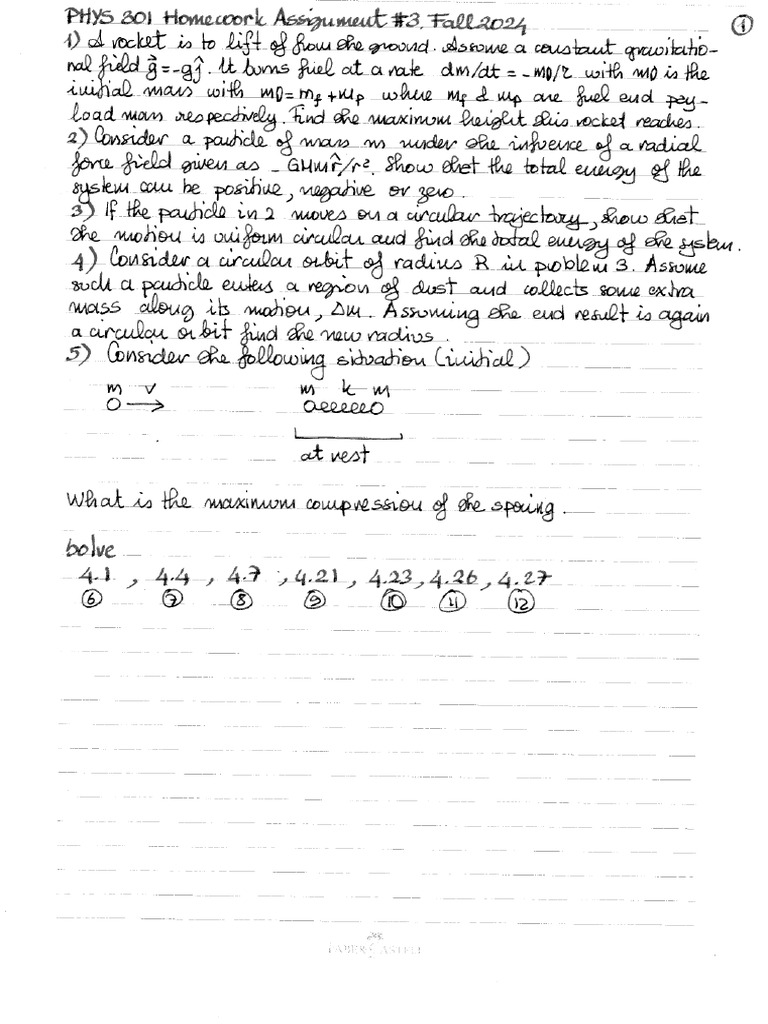 PHYS 301 Homework Assignment #3. Fall 2024
1
1) A rocket is to lift of from the ground. Assume a constant gravitatio-
nal field g⃗=-gĵ. It burns fuel at a rate dm/dt = -m0/τ with m0 is the
initial mass with m0= mf+mp where mf & mp are fuel end pey-
load mass respectively. Find the maximum height this rocket reaches.
2) Consider a particle of mass m under the infuence of a radial
force field given as -GMm r̂/r². Show that the total energy of the
system can be positive, negative or zero.
3) If the particle in 2 moves on a circular trajectory, show that
the motion is uniform circular and find the total energy of the system.
4) Consider a circular orbit of radius R in problem 3. Assume
such a particle enters a region of dust and collects some extra
mass along its motion, Δm. Assuming the end result is again
a circular orbit find the new radius.
5) Consider the following situation (initial)
m v m k m
at rest
What is the maximum compression of the spring.
Solve
4.1, 4.4, 4.7, 4.21, 4.23, 4.26, 4.27
6 7 8 9 10 11 12
FABER CASTELL